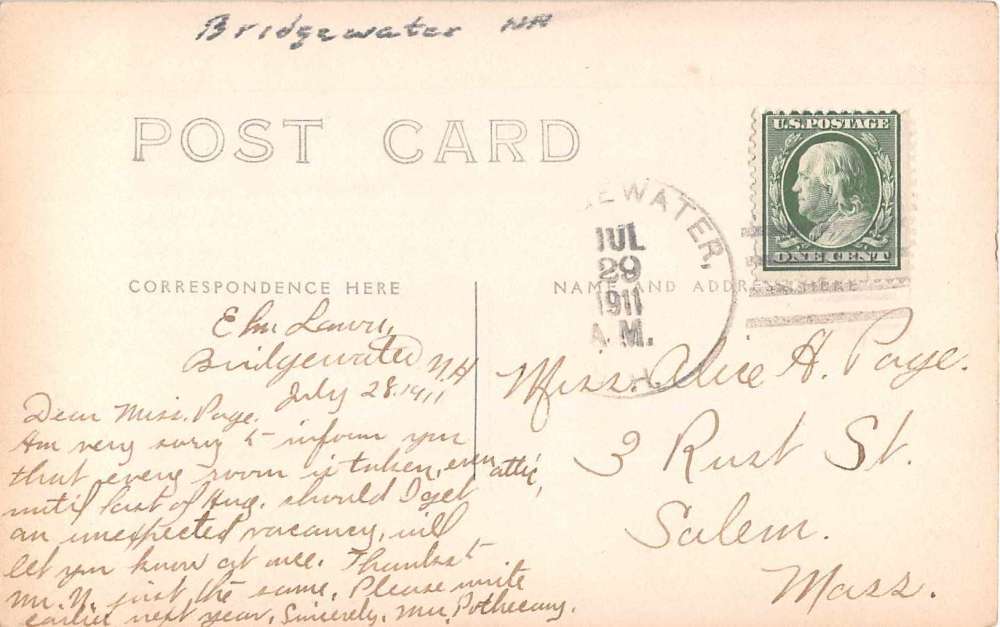 Bridgewater NH
POST CARD
U.S. POSTAGE
ONE CENT
EWATER,
JUL
29
1911
A.M.
H.
CORRESPONDENCE HERE
NAME AND ADDRESS HERE
Elm Lawn,
Bridgewater N.H
July 28. 1911
Dear Miss. Page.
Am very sorry to inform you
that every room is taken, even attic,
until last of Aug. should I get
an unexpected vacancy, will
let you know at once. Thanks to
Mr. N. just the same. Please write
earlier next year, Sincerely, Mrs. Pothecary.
Miss. Alice H. Page.
3 Rust St.
Salem.
Mass.